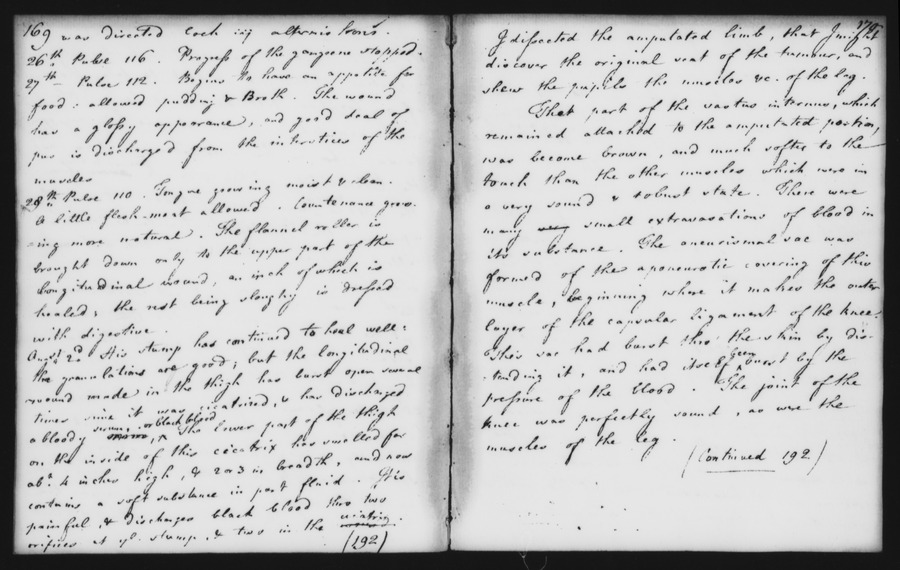 169 was directed each iij alternis horis.
26th Pulse 116. Progress of the gangrene stopped.
27th – Pulse 112. Begins to have an appetite for
food: allowed pudding & Broth. The wound
has a glossy appearance, and good deal of
pus is discharg'd from the interstices of the
muscles
28th Pulse 110. Tongue growing moist & clean.
A little flesh-meat allowed. Countenance grow-
-ing more natural. The flannel roller is
brought down only to the upper part of the
longitudinal wound, an inch of which is
healed; the rest being sloughy is dressed
with digestive.
Augst 2d His stump has continued to heal well:
the granulations are good; but the longitudinal
wound made in the thigh has burst open several
times since it was cicatrised, & has discharged
a bloody serum, or black blood. The lower part of the thigh
on the inside of this cicatrix has swelled for
abt. 4 inches high, & 2 or 3 in breadth, and now
contains a soft substance in part fluid. It is
painful, & discharges black blood thro two
orifices at ye. stump, & two in the cicatrix
(192)
I dissected the amputated limb, that I might
discover the original seat of the tumour, and
shew the pupils the muscles &c. of the leg.
That part of the vastus internus, which
remained attached to the amputated portion,
was become brown, and much softer to the
touch than the other muscles which were in
a very sound & robust state. There were
many small extravasations of blood in
its substance. The aneurismal sac was
formed of the aponeurotic covering of this
muscle, beginning where it makes the outer
layer of the capsular ligament of the knee.
This sac had burst thro' the skin by dis-
-tending it, and had itself been burst by the
pressure of the blood. The joint of the
knee was perfectly sound, as were the
muscles of the leg.
(Continued 192)